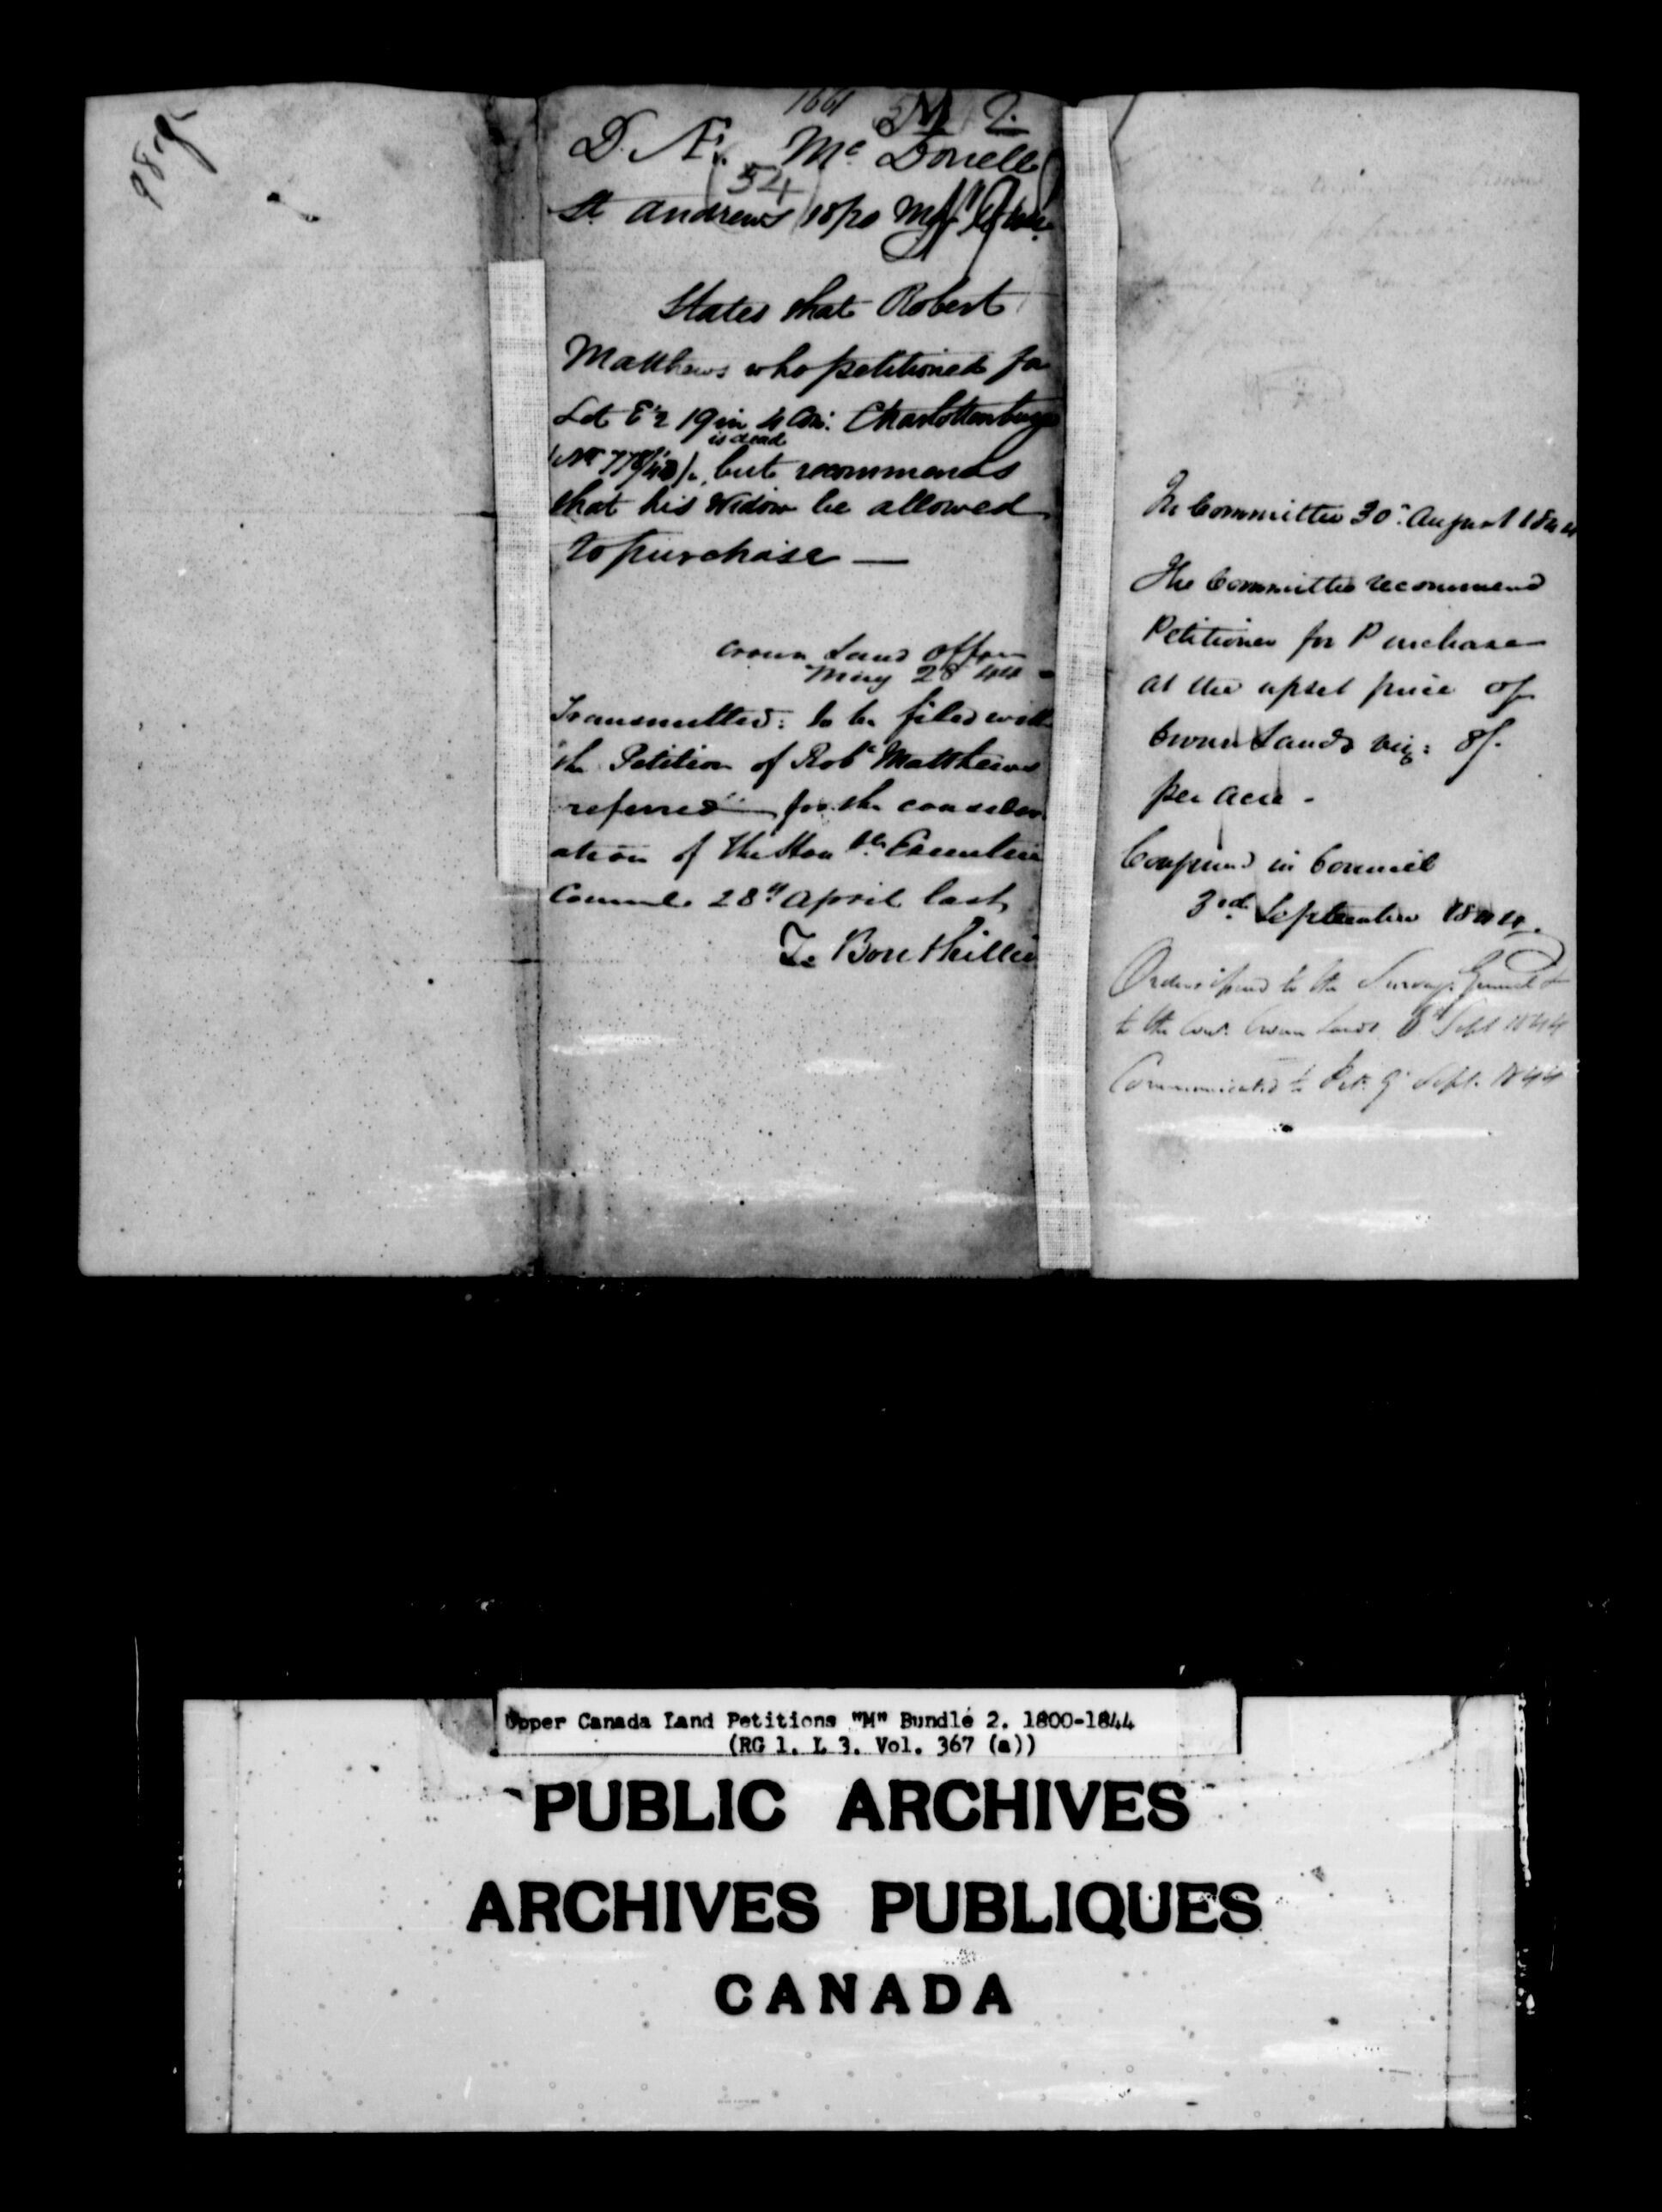 1661 M 2.
D. Æ. Mc Donell
(54)
St. Andrews
States that Robert
Matthews who petitioned for
Lot E½ 19 in 4 Con: Charlottenburgh
is dead
but recommends
that his Widow be allowed
to purchase —
Crown Land Office
May 28 44
Transmitted: to be filed with
the Petition of Robt Matthews
referred for the consider
ation of the Honble Executive
Council 28th April last,
T. Bouthillier
In Committee 30th August 1844
The Committee recommend
Petitioner for Purchase
at the upset price of
Crown Lands viz: 8/-
per acre -
Confirmed in Council
3rd September 1844.
Orders issued to the Survey. General &
to the Comr. Crown Lands Sept 1844
Communicated to Pet. 9th Sept. 1844
Upper Canada Land Petitions "M" Bundle 2. 1800-1844
(RG 1. L 3. Vol. 367 (a))
PUBLIC ARCHIVES
ARCHIVES PUBLIQUES
CANADA